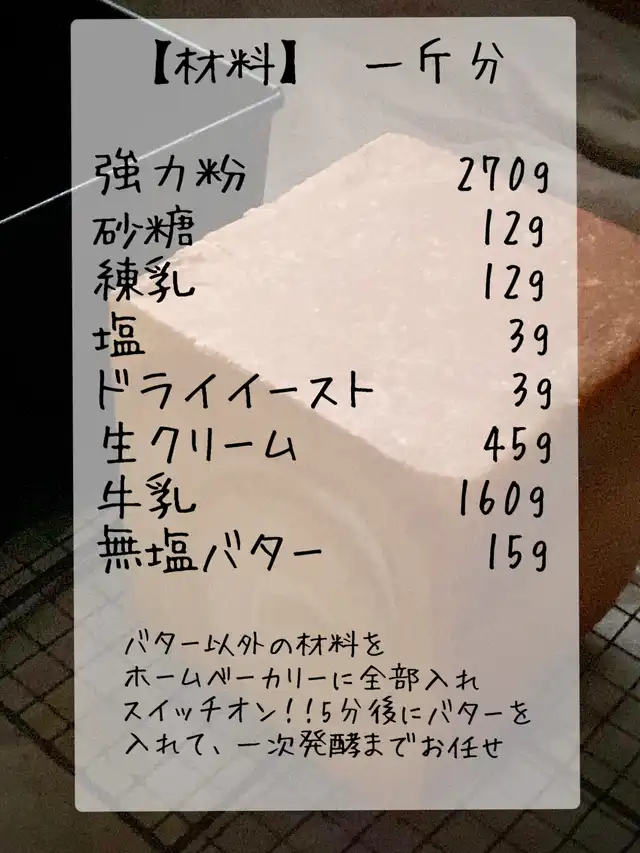 【材料】 一斤分
強力粉 270g
砂糖 12g
練乳 12g
塩 3g
ドライイースト 3g
生クリーム 45g
牛乳 160g
無塩バター 15g
バター以外の材料を
ホームベーカリーに全部入れ
スイッチオン!!5分後にバターを
入れて、一次発酵までお任せ